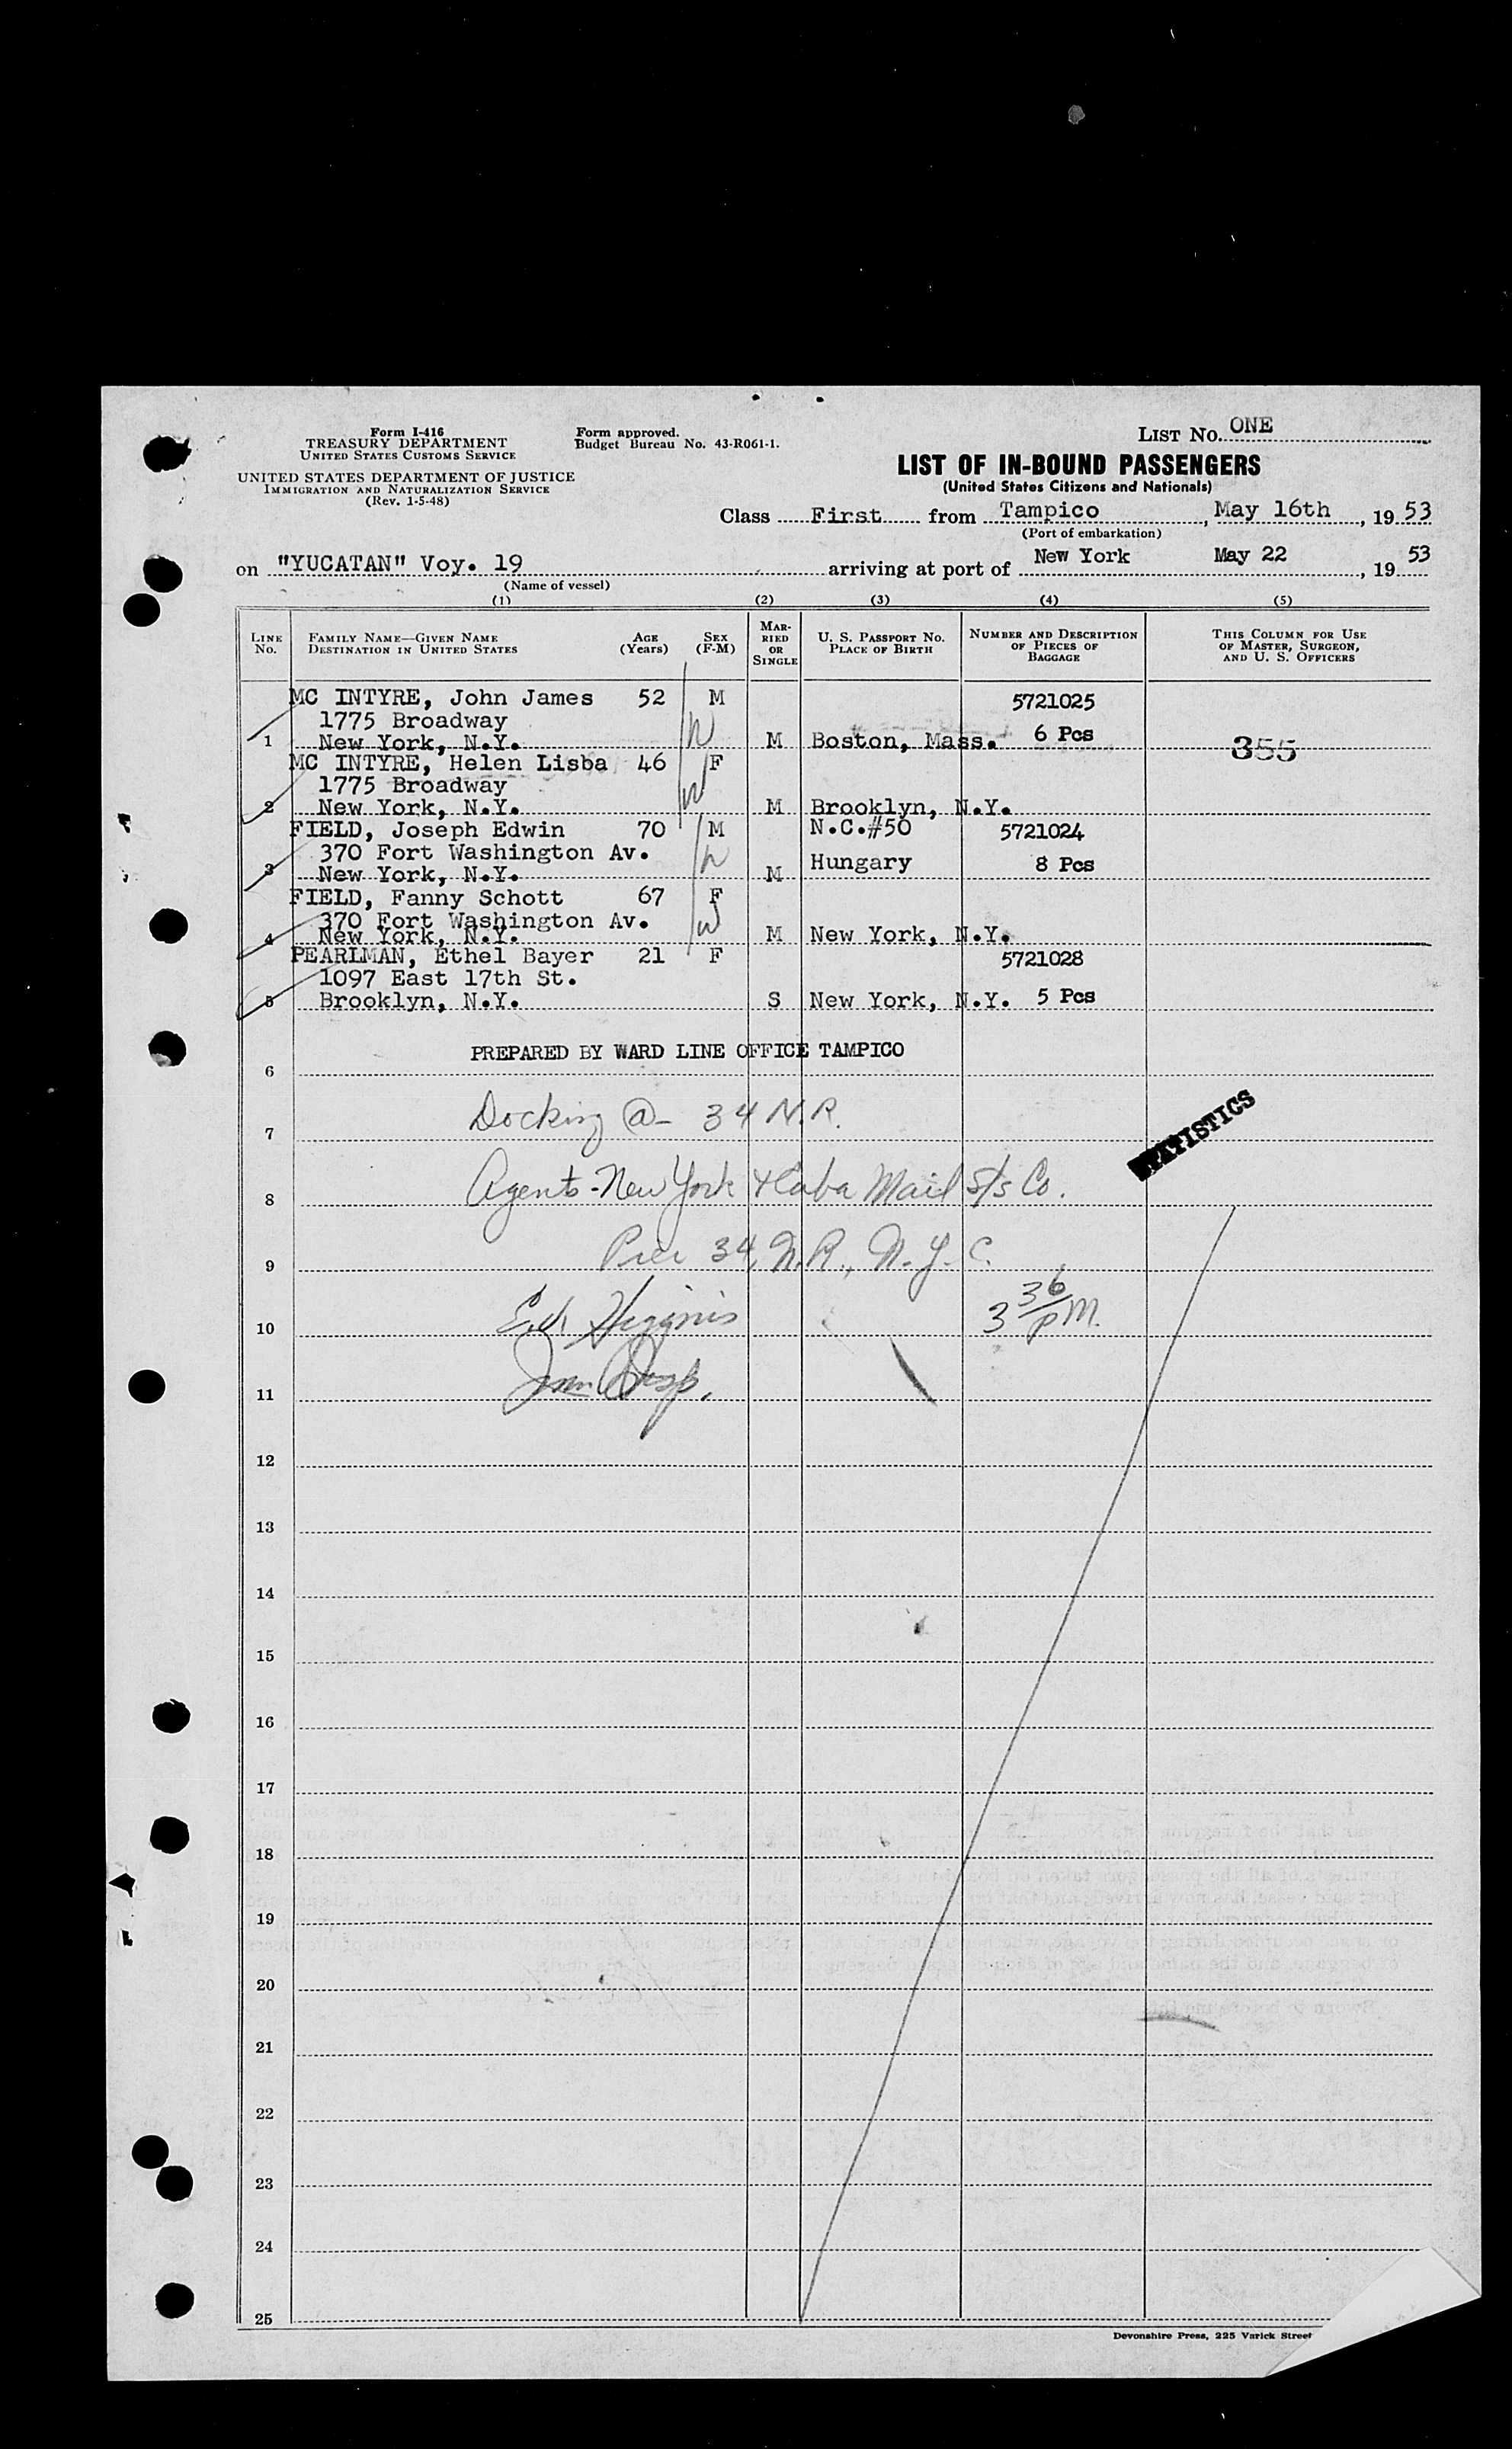 Form I-416
TREASURY DEPARTMENT
UNITED STATES CUSTOMS SERVICE
UNITED STATES DEPARTMENT OF JUSTICE
IMMIGRATION AND NATURALIZATION SERVICE
(Rev. 1-5-48)
Form approved.
Budget Bureau No. 43-R061-1.
LIST No. ONE
LIST OF IN-BOUND PASSENGERS
(United States Citizens and Nationals)
Class First from Tampico, May 16th, 19 53
(Port of embarkation)
on "YUCATAN" Voy. 19 arriving at port of New York May 22, 19 53
(Name of vessel)
(1) (2) (3) (4) (5)
LINE No.
FAMILY NAME—GIVEN NAME
DESTINATION IN UNITED STATES
AGE (Years)
SEX (F-M)
MARRIED OR SINGLE
U. S. PASSPORT NO.
PLACE OF BIRTH
NUMBER AND DESCRIPTION OF PIECES OF BAGGAGE
THIS COLUMN FOR USE OF MASTER, SURGEON, AND U. S. OFFICERS
MC INTYRE, John James 52 M 5721025
1775 Broadway
1 New York, N.Y. M Boston, Mass. 6 Pcs 355
MC INTYRE, Helen Lisba 46 F
1775 Broadway
2 New York, N.Y. M Brooklyn, N.Y.
FIELD, Joseph Edwin 70 M N.C.#50 5721024
370 Fort Washington Av. Hungary 8 Pcs
3 New York, N.Y. M
FIELD, Fanny Schott 67 F
370 Fort Washington Av.
4 New York, N.Y. M New York, N.Y.
PEARLMAN, Ethel Bayer 21 F 5721028
1097 East 17th St.
5 Brooklyn, N.Y. S New York, N.Y. 5 Pcs
PREPARED BY WARD LINE OFFICE TAMPICO
6
Docking @ 34 N.R.
7
STATISTICS
Agents - New York & Cuba Mail S/S Co.
8
Pier 34, N.R., N.Y.C.
9
E.J. Higgins 3 36 PM.
10
Imm Insp.
11
12
13
14
15
16
17
18
19
20
21
22
23
24
25
Devonshire Press, 225 Varick Street